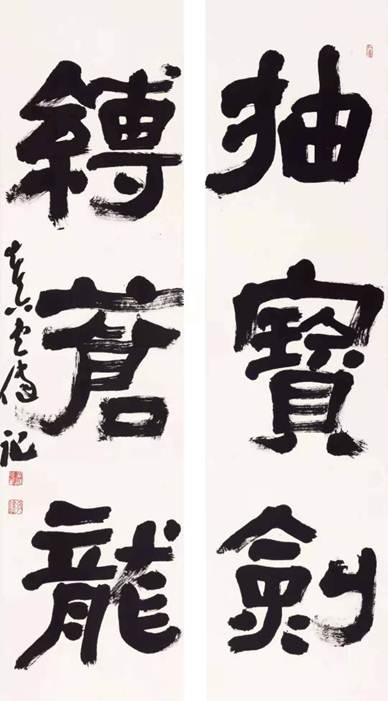 抽寶劍
縛蒼龍